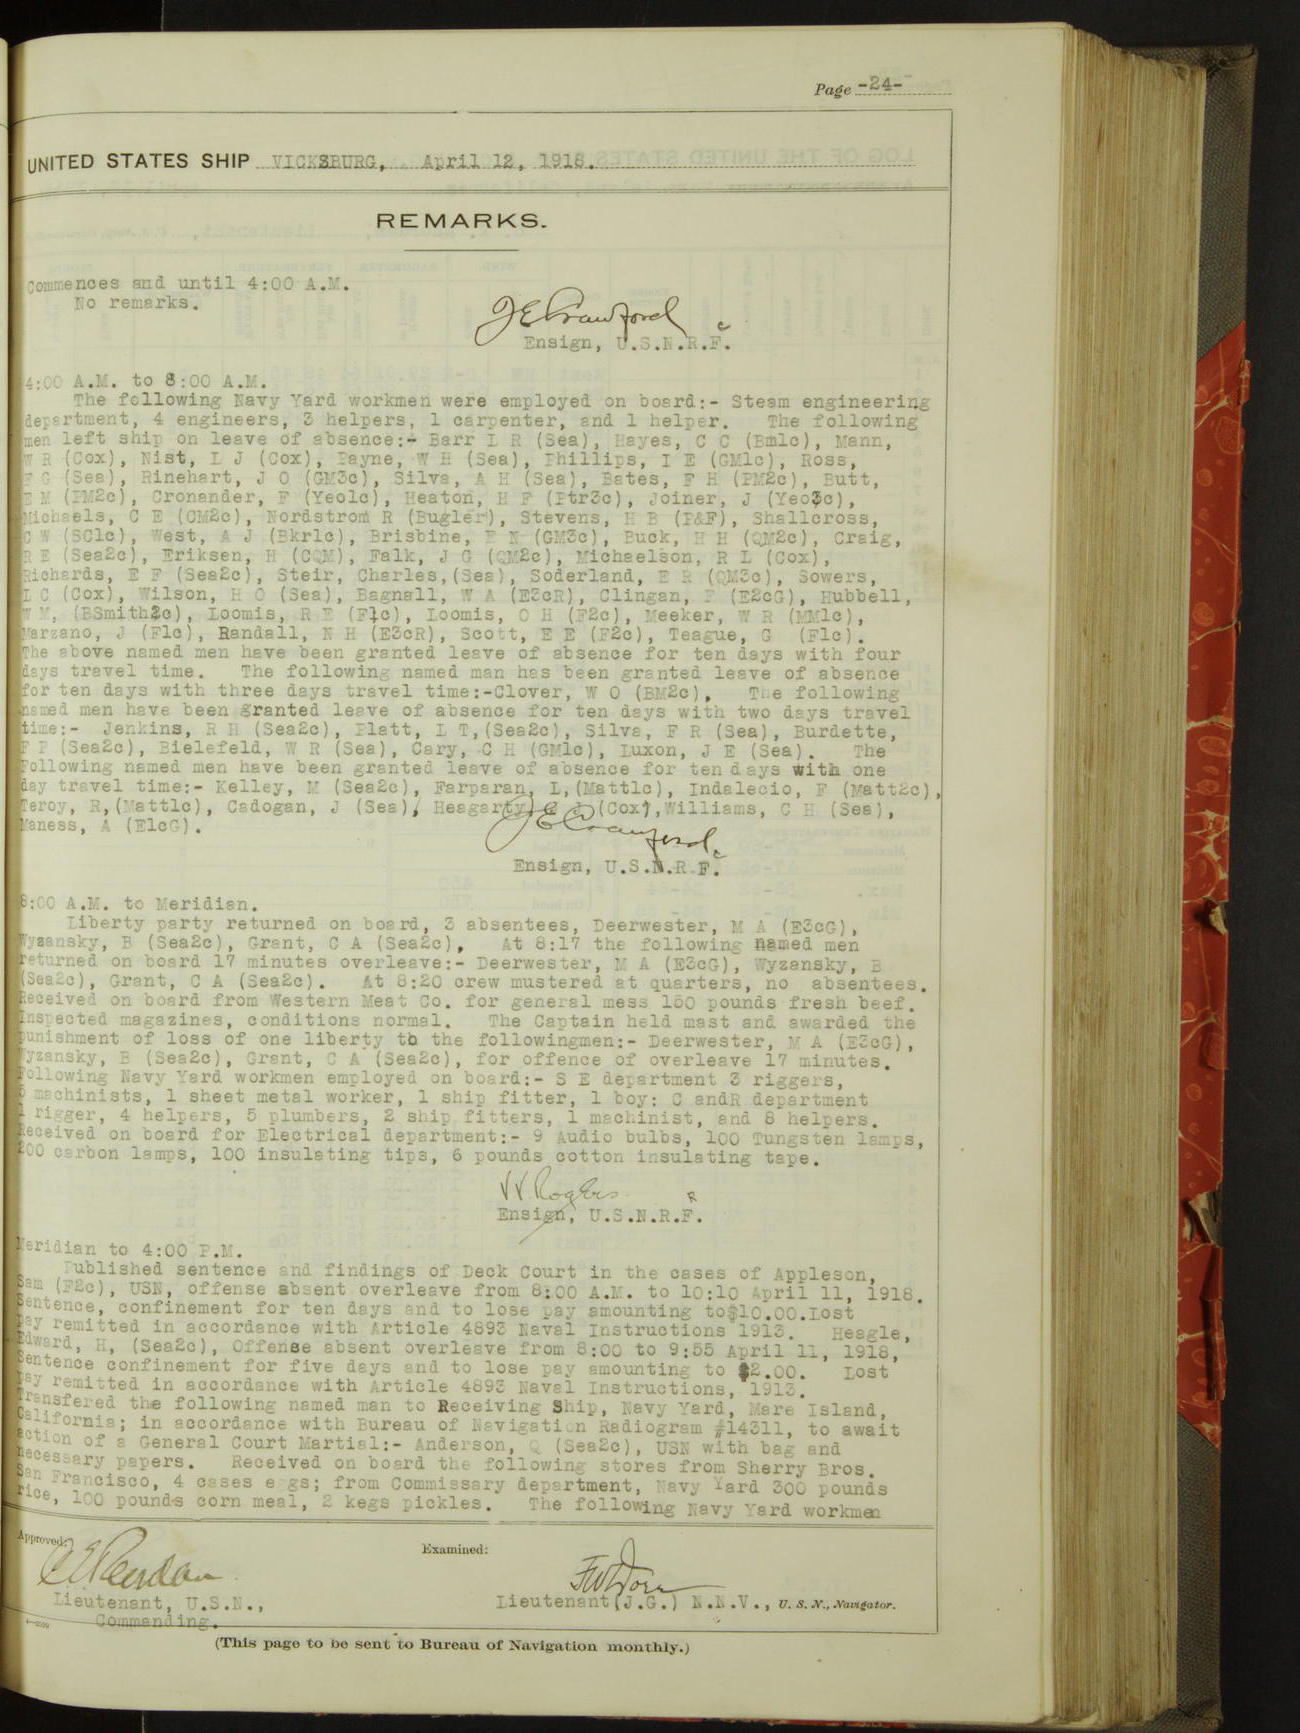 Page -24-
UNITED STATES SHIP VICKSBURG, April 12, 1918.
REMARKS.
Commences and until 4:00 A.M.
No remarks.
J E Crawford
Ensign, U.S.N.R.F.
4:00 A.M. to 8:00 A.M.
The following Navy Yard workmen were employed on board:- Steam engineering
department, 4 engineers, 3 helpers, 1 carpenter, and 1 helper. The following
men left ship on leave of absence:- Barr L R (Sea), Hayes, C C (Bm1c), Mann,
W R (Cox), Nist, L J (Cox), Payne, W H (Sea), Phillips, I E (GM1c), Ross,
F G (Sea), Rinehart, J O (GM3c), Silva, A H (Sea), Bates, F H (PM2c), Butt,
E M (PM2c), Cronander, F (Yeo1c), Heaton, H F (Ptr3c), Joiner, J (Yeo3c),
Michaels, C E (CM2c), Nordstrom R (Bugler), Stevens, H B (P&F), Shallcross,
C W (SC1c), West, A J (Bkr1c), Brisbine, E N (GM3c), Buck, H H (QM2c), Craig,
R E (Sea2c), Eriksen, H (CQM), Falk, J G (QM2c), Michaelson, R L (Cox),
Richards, E F (Sea2c), Steir, Charles,(Sea), Soderland, E R (QM3c), Sowers,
L C (Cox), Wilson, H O (Sea), Bagnall, W A (E3cR), Clingan, F (E2cG), Hubbell,
W M, (BSmith2c), Loomis, R E (F1c), Loomis, O H (F2c), Meeker, W R (MM1c),
Marzano, J (F1c), Randall, N H (E3cR), Scott, E E (F2c), Teague, G (F1c).
The above named men have been granted leave of absence for ten days with four
days travel time. The following named man has been granted leave of absence
for ten days with three days travel time:-Clover, W O (BM2c). The following
named men have been granted leave of absence for ten days with two days travel
time:- Jenkins, R H (Sea2c), Platt, L T,(Sea2c), Silva, F R (Sea), Burdette,
F P (Sea2c), Bielefeld, W R (Sea), Cary, C H (GM1c), Luxon, J E (Sea). The
Following named men have been granted leave of absence for ten days with one
day travel time:- Kelley, M (Sea2c), Farparan, L,(Matt1c), Indalecio, F (Matt2c),
Teroy, R,(Matt1c), Cadogan, J (Sea), Heagarty, (Cox),Williams, C H (Sea),
Maness, A (E1cG).
J E Crawford
Ensign, U.S.N.R.F.
8:00 A.M. to Meridian.
Liberty party returned on board, 3 absentees, Deerwester, M A (E3cG),
Wyzansky, B (Sea2c), Grant, C A (Sea2c). At 8:17 the following named men
returned on board 17 minutes overleave:- Deerwester, M A (E3cG), Wyzansky, B
(Sea2c), Grant, C A (Sea2c). At 8:20 crew mustered at quarters, no absentees.
Received on board from Western Meat Co. for general mess 150 pounds fresh beef.
Inspected magazines, conditions normal. The Captain held mast and awarded the
punishment of loss of one liberty to the followingmen:- Deerwester, M A (E3cG),
Wyzansky, B (Sea2c), Grant, C A (Sea2c), for offence of overleave 17 minutes.
Following Navy Yard workmen employed on board:- S E department 3 riggers,
5 machinists, 1 sheet metal worker, 1 ship fitter, 1 boy: C andR department
1 rigger, 4 helpers, 5 plumbers, 2 ship fitters, 1 machinist, and 8 helpers.
Received on board for Electrical department:- 9 Audio bulbs, 100 Tungsten lamps,
200 carbon lamps, 100 insulating tips, 6 pounds cotton insulating tape.
W Rogers
Ensign, U.S.N.R.F.
Meridian to 4:00 P.M.
Published sentence and findings of Deck Court in the cases of Appleson,
Sam (F2c), USN, offense absent overleave from 8:00 A.M. to 10:10 April 11, 1918.
Sentence, confinement for ten days and to lose pay amounting to$10.00.Lost
pay remitted in accordance with Article 4893 Naval Instructions 1913. Heagle,
Edward, H, (Sea2c), Offense absent overleave from 8:00 to 9:55 April 11, 1918,
Sentence confinement for five days and to lose pay amounting to $2.00. Lost
pay remitted in accordance with Article 4893 Naval Instructions, 1913.
Transfered the following named man to Receiving Ship, Navy Yard, Mare Island,
California; in accordance with Bureau of Navigation Radiogram #14311, to await
action of a General Court Martial:- Anderson, Q (Sea2c), USN with bag and
necessary papers. Received on board the following stores from Sherry Bros.
San Francisco, 4 cases eggs; from Commissary department, Navy Yard 300 pounds
rice, 100 pounds corn meal, 2 kegs pickles. The following Navy Yard workmen
Approved:
Examined:
Lieutenant, U.S.N.,
Commanding.
Lieutenant(J.G.) N.N.V., U. S. N., Navigator.
(This page to be sent to Bureau of Navigation monthly.)